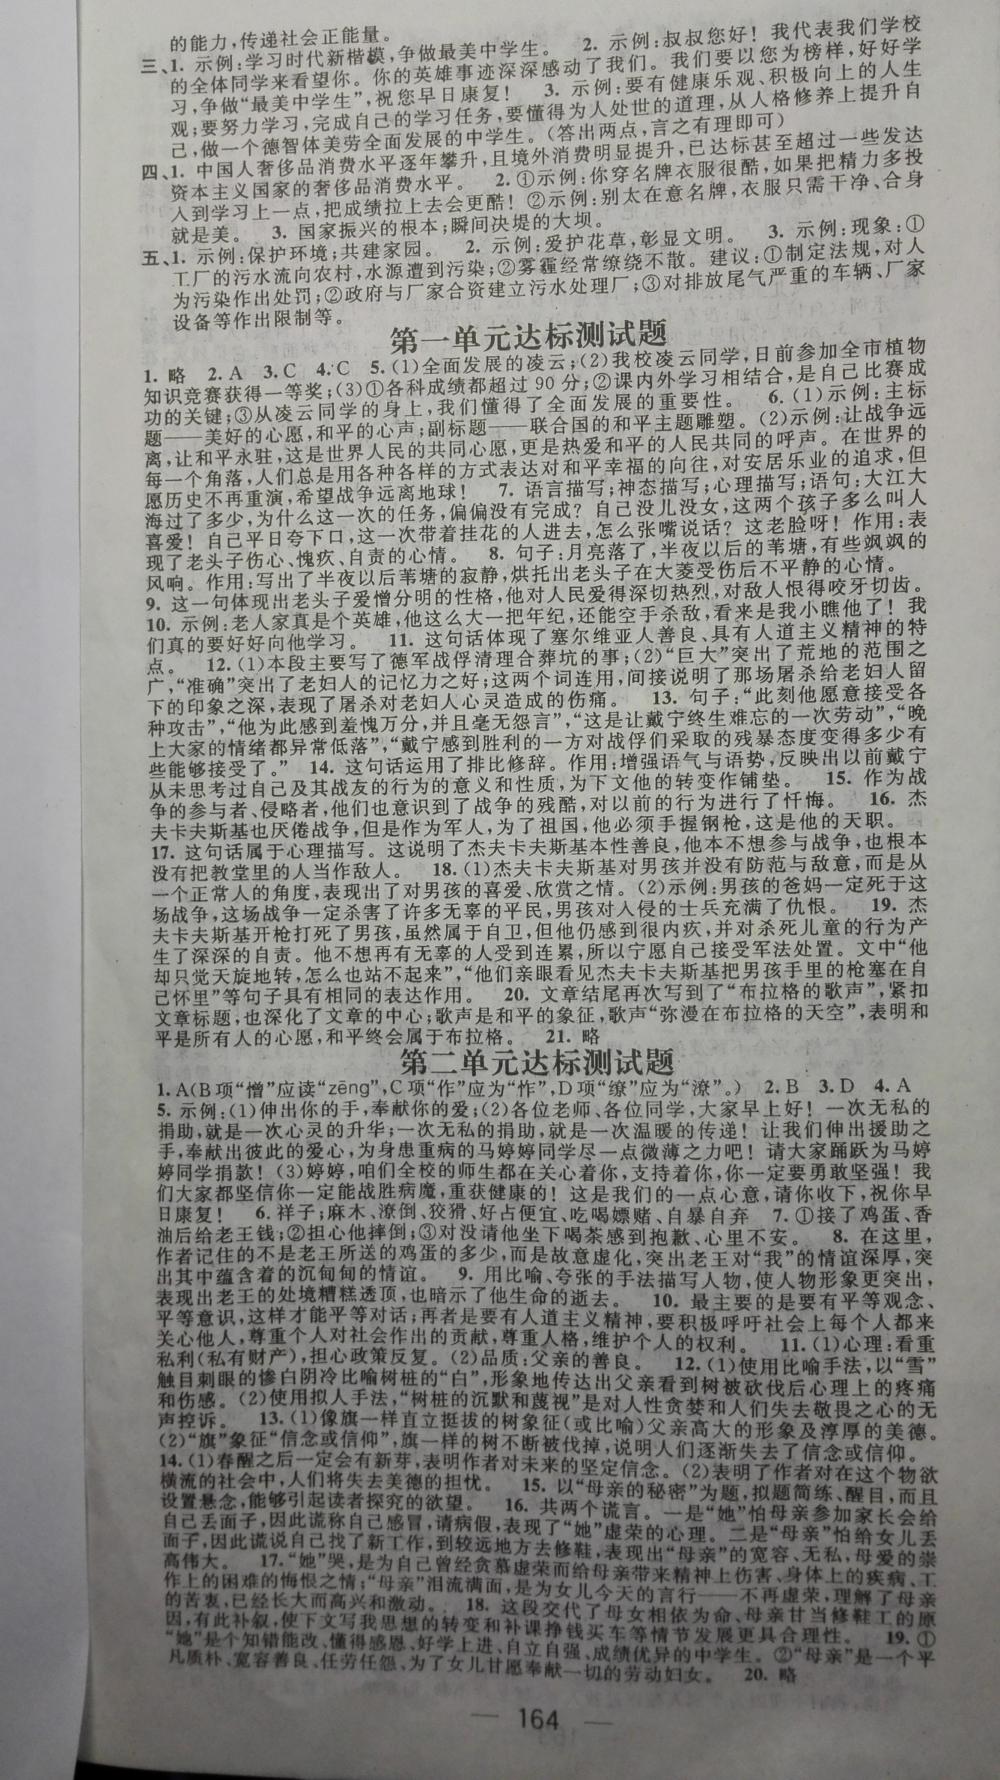 的能力,传递社会正能量。
三、1. 示例:学习时代新楷模,争做最美中学生。 2. 示例:叔叔您好!我代表我们学校
的全体同学来看望你。你的英雄事迹深深感动了我们。我们要以您为榜样,好好学
习,争做“最美中学生”,祝您早日康复! 3. 示例:要有健康乐观、积极向上的人生
观;要努力学习,完成自己的学习任务,要懂得为人处世的道理,从人格修养上提升自
己,做一个德智体美劳全面发展的中学生。(答出两点,言之有理即可)
四、1. 中国人奢侈品消费水平逐年攀升,且境外消费明显提升,已达标甚至超过一些发达
资本主义国家的奢侈品消费水平。 2. ①示例:你穿名牌衣服很酷,如果把精力多投
入到学习上一点,把成绩拉上去会更酷!②示例:别太在意名牌,衣服只需干净、合身
就是美。 3. 国家振兴的根本;瞬间决堤的大坝。
五、1. 示例:保护环境;共建家园。 2. 示例:爱护花草,彰显文明。 3. 示例:现象:①
工厂的污水流向农村,水源遭到污染;②雾霾经常缭绕不散。建议:①制定法规,对人
为污染作出处罚;②政府与厂家合资建立污水处理厂;③对排放尾气严重的车辆、厂家
设备等作出限制等。
第一单元达标测试题
1. 略 2. A 3. C 4. C 5. (1)全面发展的凌云;(2)我校凌云同学,日前参加全市植物
知识竞赛获得一等奖;(3)①各科成绩都超过90分;②课内外学习相结合,是自己比赛成
功的关键;③从凌云同学的身上,我们懂得了全面发展的重要性。 6. (1)示例:主标
题——美好的心愿,和平的心声;副标题——联合国的和平主题雕塑。(2)示例:让战争远
离,让和平永驻,这是世界人民的共同心愿,更是热爱和平的人民共同的呼声。在世界的
每一个角落,人们总是用各种各样的方式表达对和平幸福的向往,对安居乐业的追求,但
愿历史不再重演,希望战争远离地球! 7. 语言描写;神态描写;心理描写;语句:大江大
海过了多少,为什么这一次的任务,偏偏没有完成?自己没儿没女,这两个孩子多么叫人
喜爱!自己平日夸下口,这一次带着挂花的人进去,怎么张嘴说话?这老脸呀!作用:表
现了老头子伤心、愧疚、自责的心情。 8. 句子:月亮落了,半夜以后的苇塘,有些飒飒的
风响。作用:写出了半夜以后苇塘的寂静,烘托出老头子在大菱受伤后不平静的心情。
9. 这一句体现出老头子爱憎分明的性格,他对人民爱得深切热烈,对敌人恨得咬牙切齿。
10. 示例:老人家真是个英雄,他这么大一把年纪,还能空手杀敌,看来是我小瞧他了!我
们真的要好好向他学习。 11. 这句话体现了塞尔维亚人善良、具有人道主义精神的特
点。 12. (1)本段主要写了德军战俘清理合葬坑的事;(2)“巨大”突出了荒地的范围之
广,“准确”突出了老妇人的记忆力之好;这两个词连用,间接说明了那场屠杀给老妇人留
下的印象之深,表现了屠杀对老妇人心灵造成的伤痛。 13. 句子:“此刻他愿意接受各
种攻击”,“他为此感到羞愧万分,并且毫无怨言”,“这是让戴宁终生难忘的一次劳动”,“晚
上大家的情绪都异常低落”,“戴宁感到胜利的一方对战俘们采取的残暴态度变得多少有
些能够接受了。” 14. 这句话运用了排比修辞。作用:增强语气与语势,反映出以前戴宁
从未思考过自己及其战友的行为的意义和性质,为下文他的转变作铺垫。 15. 作为战
争的参与者、侵略者,他们也意识到了战争的残酷,对以前的行为进行了忏悔。 16. 杰
夫卡夫斯基也厌倦战争,但是作为军人,为了祖国,他必须手握钢枪,这是他的天职。
17. 这句话属于心理描写。这说明了杰夫卡夫斯基本性善良,他本不想参与战争,也根本
没有把教堂里的人当作敌人。 18. (1)杰夫卡夫斯基对男孩并没有防范与敌意,而是从
一个正常人的角度,表现出了对男孩的喜爱、欣赏之情。(2)示例:男孩的爸妈一定死于这
场战争,这场战争一定杀害了许多无辜的平民,男孩对入侵的士兵充满了仇恨。 19. 杰
夫卡夫斯基开枪打死了男孩,虽然属于自卫,但他仍感到很内疚,并对杀死儿童的行为产
生了深深的自责。他不想再有无辜的人受到连累,所以宁愿自己接受军法处置。文中“他
却只觉天旋地转,怎么也站不起来”,“他们亲眼看见杰夫卡夫斯基把男孩手里的枪塞在自
己怀里”等句子具有相同的表达作用。 20. 文章结尾再次写到了“布拉格的歌声”,紧扣
文章标题,也深化了文章的中心;歌声是和平的象征,歌声“弥漫在布拉格的天空”,表明和
平是所有人的心愿,和平终会属于布拉格。 21. 略
第二单元达标测试题
1. A(B项“憎”应读“zēng”,C项“作”应为“怍”,D项“缭”应为“潦”。) 2. B 3. D 4. A
5. 示例:(1)伸出你的手,奉献你的爱;(2)各位老师、各位同学,大家早上好!一次无私的
捐助,就是一次心灵的升华;一次无私的捐助,就是一次温暖的传递!让我们伸出援助之
手,奉献出彼此的爱心,为身患重病的马婷婷同学尽一点微薄之力吧!请大家踊跃为马婷
婷同学捐款!(3)婷婷,咱们全校的师生都在关心着你,支持着你,你一定要勇敢坚强!我
们大家都坚信你一定能战胜病魔,重获健康的!这是我们的一点心意,请你收下,祝你早
日康复! 6. 祥子;麻木、潦倒、狡猾、好占便宜、吃喝嫖赌、自暴自弃 7. ①接了鸡蛋、香
油后给老王钱;②担心他摔倒;③对没请他坐下喝茶感到抱歉、心里不安。 8. 在这里,
作者记住的不是老王所送的鸡蛋的多少,而是故意虚化,突出老王对“我”的情谊深厚,突
出其中蕴含着的沉甸甸的情谊。 9. 用比喻、夸张的手法描写人物,使人物形象更突出,
表现出老王的处境糟糕透顶,也暗示了他生命的逝去。 10. 最主要的是要有平等观念、
平等意识,这样才能平等对话;再者是要有人道主义精神,要积极呼吁社会上每个人都来
关心他人,尊重个人对社会作出的贡献,尊重人格,维护个人的权利。 11. (1)心理:看重
私利(私有财产),担心政策反复。(2)品质:父亲的善良。 12. (1)使用比喻手法,以“雪”
触目刺眼的惨白阴冷比喻树桩的“白”,形象地传达出父亲看到树被砍伐后心理上的疼痛
和伤感。(2)使用拟人手法,“树桩的沉默和蔑视”是对人性贪婪和人们失去敬畏之心的无
声控诉。 13. (1)像旗一样直立挺拔的树象征(或比喻)父亲高大的形象及淳厚的美德。
(2)“旗”象征“信念或信仰”,旗一样的树不断被伐掉,说明人们逐渐失去了信念或信仰。
14. (1)春醒之后一定会有新芽,表明作者对未来的坚定信念。(2)表明了作者对在这个物欲
横流的社会中,人们将失去美德的担忧。 15. 以“母亲的秘密”为题,拟题简练、醒目,而且
设置悬念,能够引起读者探究的欲望。 16. 共两个谎言。一是“她”怕母亲参加家长会给
自己丢面子,因此谎称自己感冒,请病假,表现了“她”虚荣的心理。二是“母亲”怕给女儿丢
面子,因此谎说自己找了新工作,到较远地方去修鞋,表现出“母亲”的宽容、无私,母爱的崇
高伟大。 17. “她”哭,是为自己曾经贪慕虚荣而给母亲带来精神上伤害、身体上的疾病、工
作上的困难的悔恨之情;“母亲”泪流满面,是为女儿今天的言行——不再虚荣,理解了母亲
的苦衷,已经长大而高兴和激动。 18. 这段交代了母女相依为命、母亲甘当修鞋工的原
因,有此补叙,使下文写我思想的转变和补课挣钱买车等情节发展更具合理性。 19. ①
“她”是个知错能改、懂得感恩、好学上进、自立自强、成绩优异的中学生。②“母亲”是一个平
凡质朴、宽容善良、任劳任怨、为了女儿甘愿奉献一切的劳动妇女。 20. 略
— 164 —